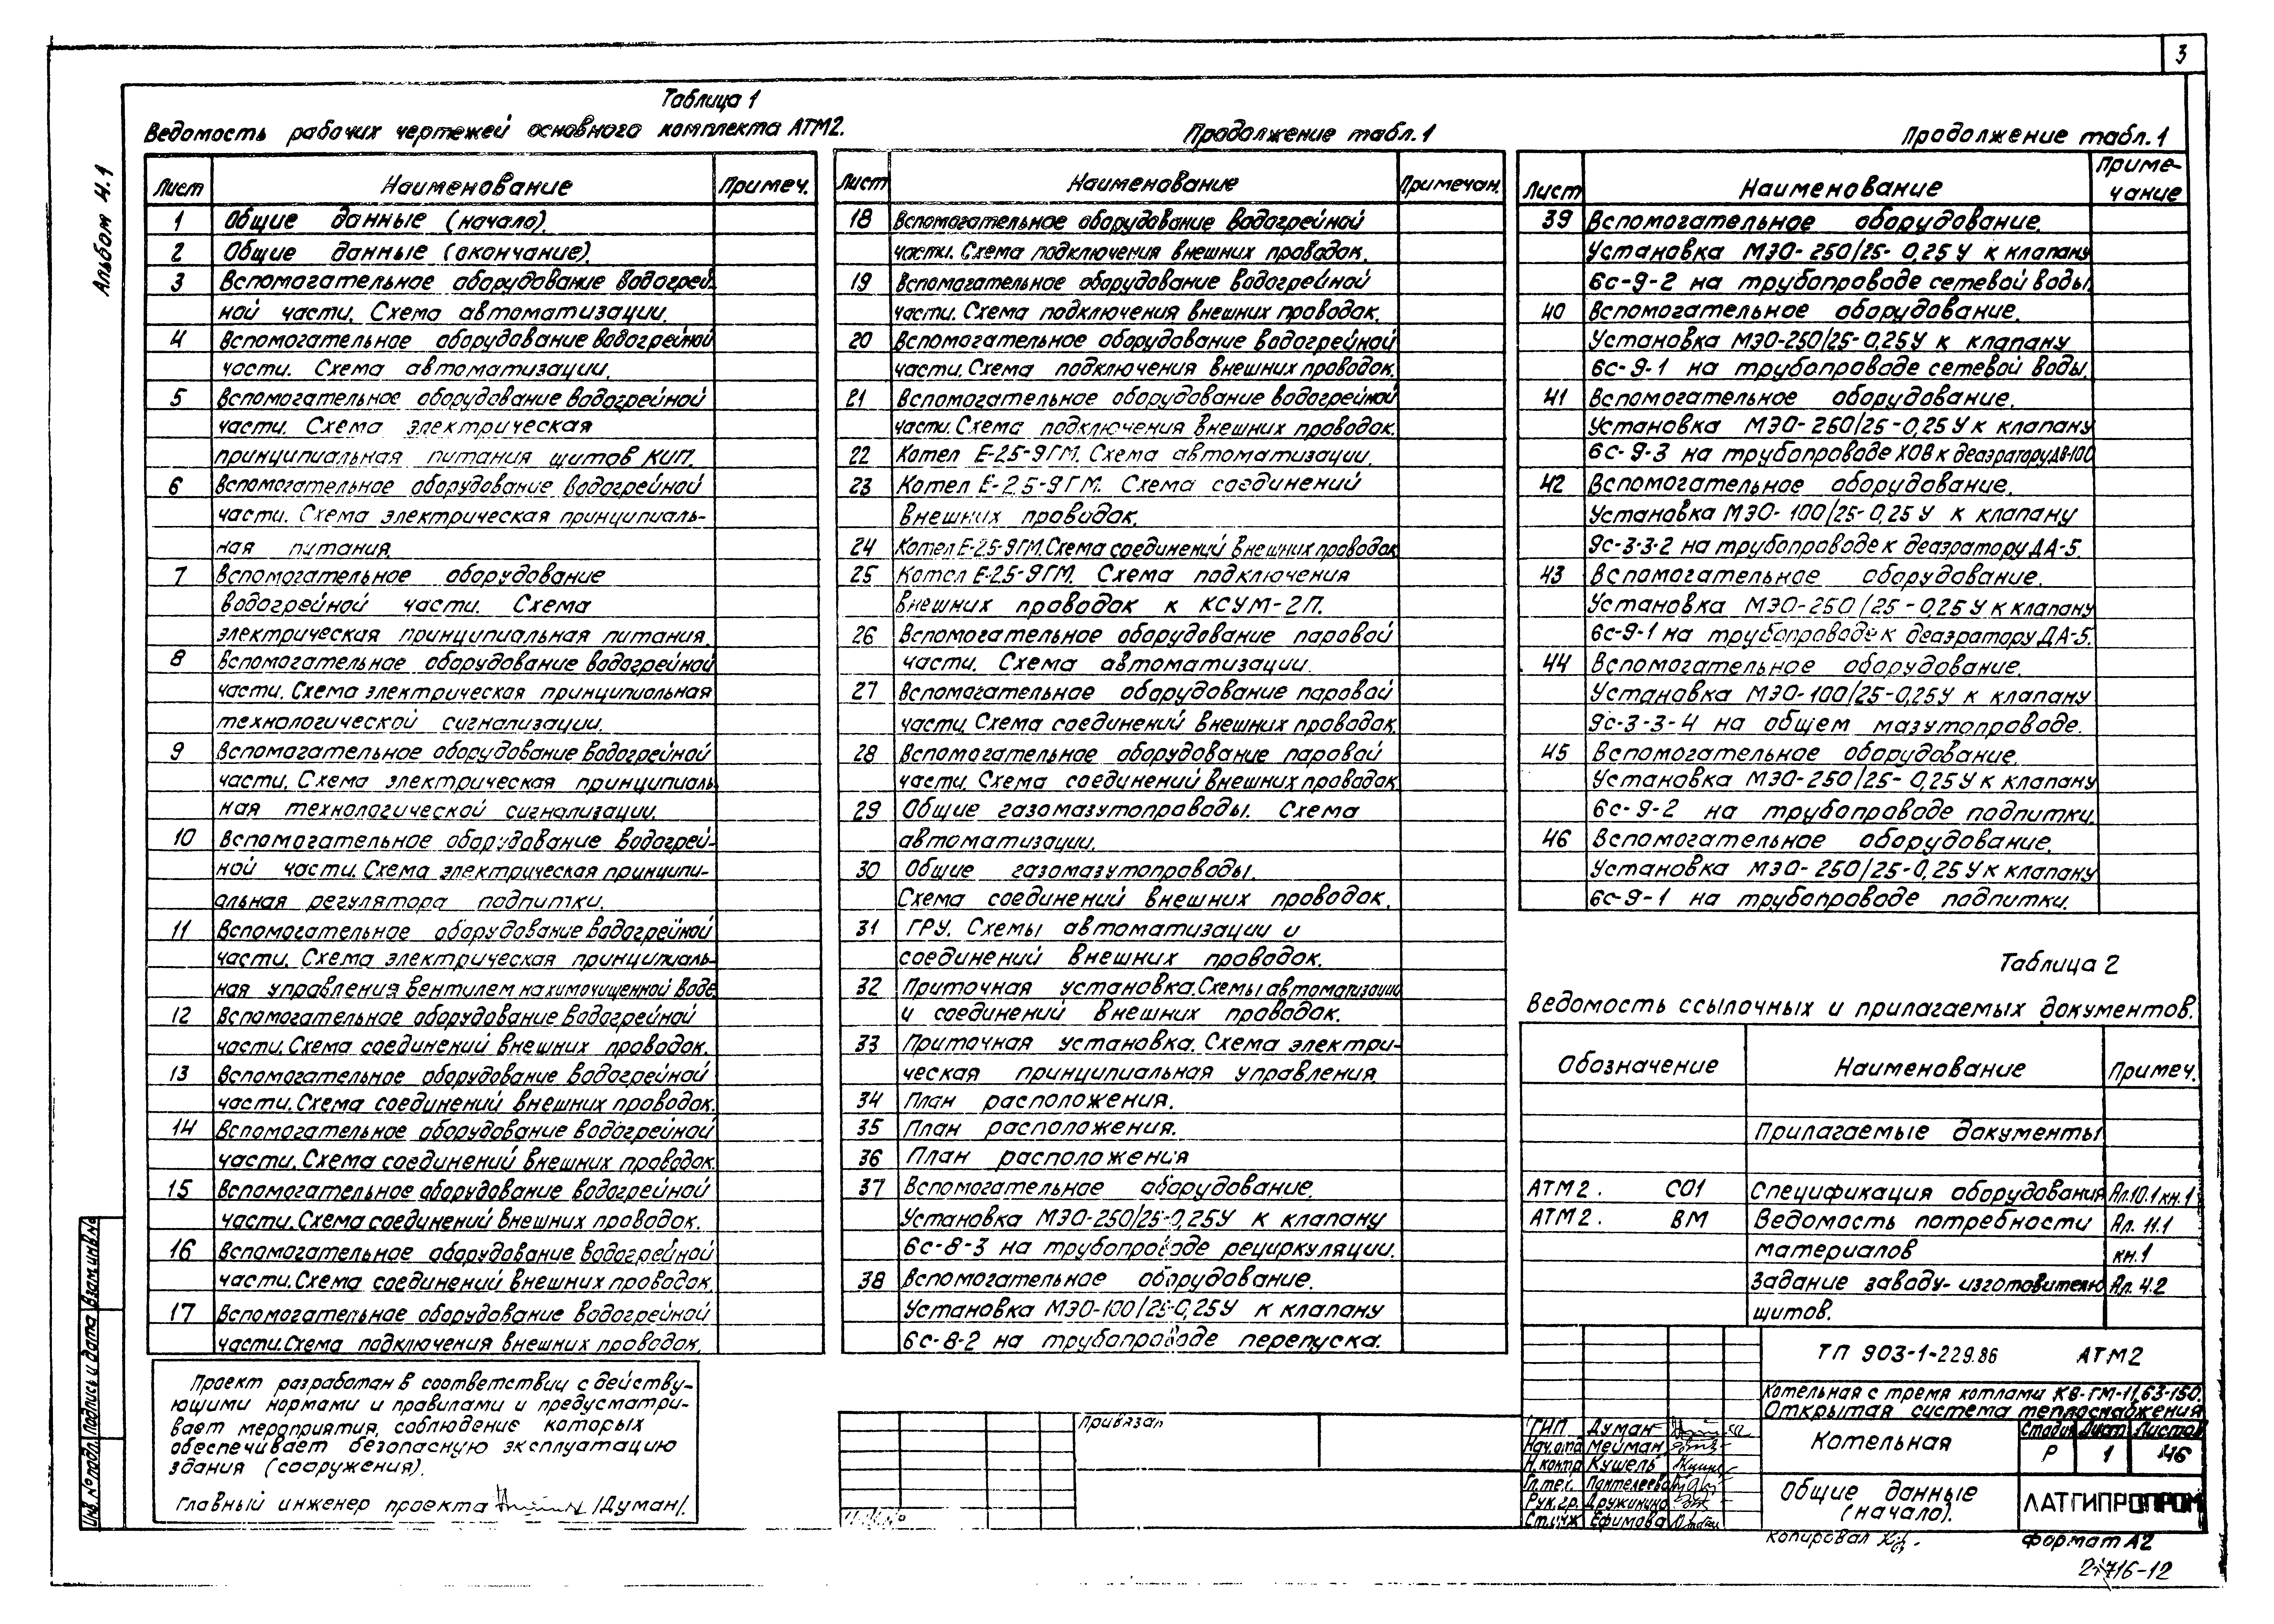 3
Альбом 4.1
Таблица 1
Ведомость рабочих чертежей основного комплекта АТМ2.
Лист Наименование Примеч.
1 Общие данные (начало).
2 Общие данные (окончание).
3 Вспомогательное оборудование водогрей-
ной части. Схема автоматизации.
4 Вспомогательное оборудование водогрейной
части. Схема автоматизации.
5 Вспомогательное оборудование водогрейной
части. Схема электрическая
принципиальная питания щитов КИП.
6 Вспомогательное оборудование водогрейной
части. Схема электрическая принципиаль-
ная питания.
7 Вспомогательное оборудование
водогрейной части. Схема
электрическая принципиальная питания.
8 Вспомогательное оборудование водогрейной
части. Схема электрическая принципиальная
технологической сигнализации.
9 Вспомогательное оборудование водогрейной
части. Схема электрическая принципиаль-
ная технологической сигнализации.
10 Вспомогательное оборудование водогрей-
ной части. Схема электрическая принципи-
альная регулятора подпитки.
11 Вспомогательное оборудование водогрейной
части. Схема электрическая принципиаль-
ная управления вентилем на химочищенной воде.
12 Вспомогательное оборудование водогрейной
части. Схема соединений внешних проводок.
13 Вспомогательное оборудование водогрейной
части. Схема соединений внешних проводок.
14 Вспомогательное оборудование водогрейной
части. Схема соединений внешних проводок.
15 Вспомогательное оборудование водогрейной
части. Схема соединений внешних проводок.
16 Вспомогательное оборудование водогрейной
части. Схема соединений внешних проводок.
17 Вспомогательное оборудование водогрейной
части. Схема подключения внешних проводок.
Продолжение табл. 1
Лист Наименование Примечан.
18 Вспомогательное оборудование водогрейной
части. Схема подключения внешних проводок.
19 Вспомогательное оборудование водогрейной
части. Схема подключения внешних проводок.
20 Вспомогательное оборудование водогрейной
части. Схема подключения внешних проводок.
21 Вспомогательное оборудование водогрейной
части. Схема подключения внешних проводок.
22 Котел Е-2.5-9ГМ. Схема автоматизации.
23 Котел Е-2.5-9ГМ. Схема соединений
внешних проводок.
24 Котел Е-2.5-9ГМ. Схема соединений внешних проводок
25 Котел Е-2.5-9ГМ. Схема подключения
внешних проводок к КСУМ-2П.
26 Вспомогательное оборудование паровой
части. Схема автоматизации.
27 Вспомогательное оборудование паровой
части. Схема соединений внешних проводок.
28 Вспомогательное оборудование паровой
части. Схема соединений внешних проводок
29 Общие газомазутопроводы. Схема
автоматизации.
30 Общие газомазутопроводы.
Схема соединений внешних проводок.
31 ГРУ. Схемы автоматизации и
соединений внешних проводок.
32 Приточная установка. Схемы автоматизации
и соединений внешних проводок.
33 Приточная установка. Схема электри-
ческая принципиальная управления.
34 План расположения.
35 План расположения.
36 План расположения
37 Вспомогательное оборудование.
Установка МЭО-250/25-0,25У к клапану
6с-8-3 на трубопроводе рециркуляции.
38 Вспомогательное оборудование.
Установка МЭО-100/25-0,25У к клапану
6с-8-2 на трубопроводе перепуска.
Продолжение табл. 1
Лист Наименование Приме-
чание
39 Вспомогательное оборудование.
Установка МЭО-250/25-0,25У к клапану
6с-9-2 на трубопроводе сетевой воды.
40 Вспомогательное оборудование.
Установка МЭО-250/25-0,25У к клапану
6с-9-1 на трубопроводе сетевой воды.
41 Вспомогательное оборудование.
Установка МЭО-250/25-0,25У к клапану
6с-9-3 на трубопроводе ХОВ к деаэратору ДВ-100
42 Вспомогательное оборудование.
Установка МЭО-100/25-0,25У к клапану
9с-3-3-2 на трубопроводе к деаэратору ДА-5.
43 Вспомогательное оборудование.
Установка МЭО-250/25-0,25У к клапану
6с-9-1 на трубопроводе к деаэратору ДА-5.
44 Вспомогательное оборудование.
Установка МЭО-100/25-0,25У к клапану
9с-3-3-4 на общем мазутопроводе.
45 Вспомогательное оборудование.
Установка МЭО-250/25-0,25У к клапану
6с-9-2 на трубопроводе подпитки.
46 Вспомогательное оборудование.
Установка МЭО-250/25-0,25У к клапану
6с-9-1 на трубопроводе подпитки.
Таблица 2
Ведомость ссылочных и прилагаемых документов.
Обозначение Наименование Примеч.
Прилагаемые документы
АТМ2. СО1 Спецификация оборудования Ал.10.1 кн.1
АТМ2. ВМ Ведомость потребности Ал. 11.1
материалов кн.1
Задание заводу-изготовителю Ал. 4.2
щитов.
Проект разработан в соответствии с действу-
ющими нормами и правилами и предусматри-
вает мероприятия, соблюдение которых
обеспечивает безопасную эксплуатацию
здания (сооружения).
Главный инженер проекта /Думан/.
Инв. № подл. Подпись и дата Взам.инв.№
Привязан
Инв.№
ТП 903-1-229.86 АТМ2
Котельная с тремя котлами КВ-ГМ-11,63-150.
Открытая система теплоснабжения
ГИП Думан
Нач.отд Мейман
Н.контр Кушель
Гл.тех. Пантелеева
Рук.гр. Дружинина
Ст.инж Ефимова
Котельная
Стадия Лист Листов
Р 1 46
Общие данные
(начало).
ЛАТГИПРОПРОМ
Копировал
Формат А2
716-12